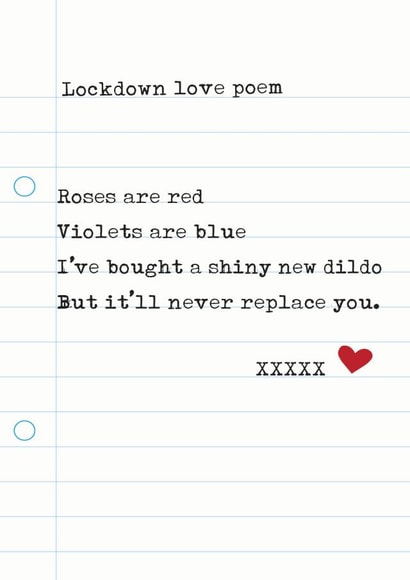 Lockdown love poem
Roses are red
Violets are blue
I've bought a shiny new dildo
But it'll never replace you.
XXXXX